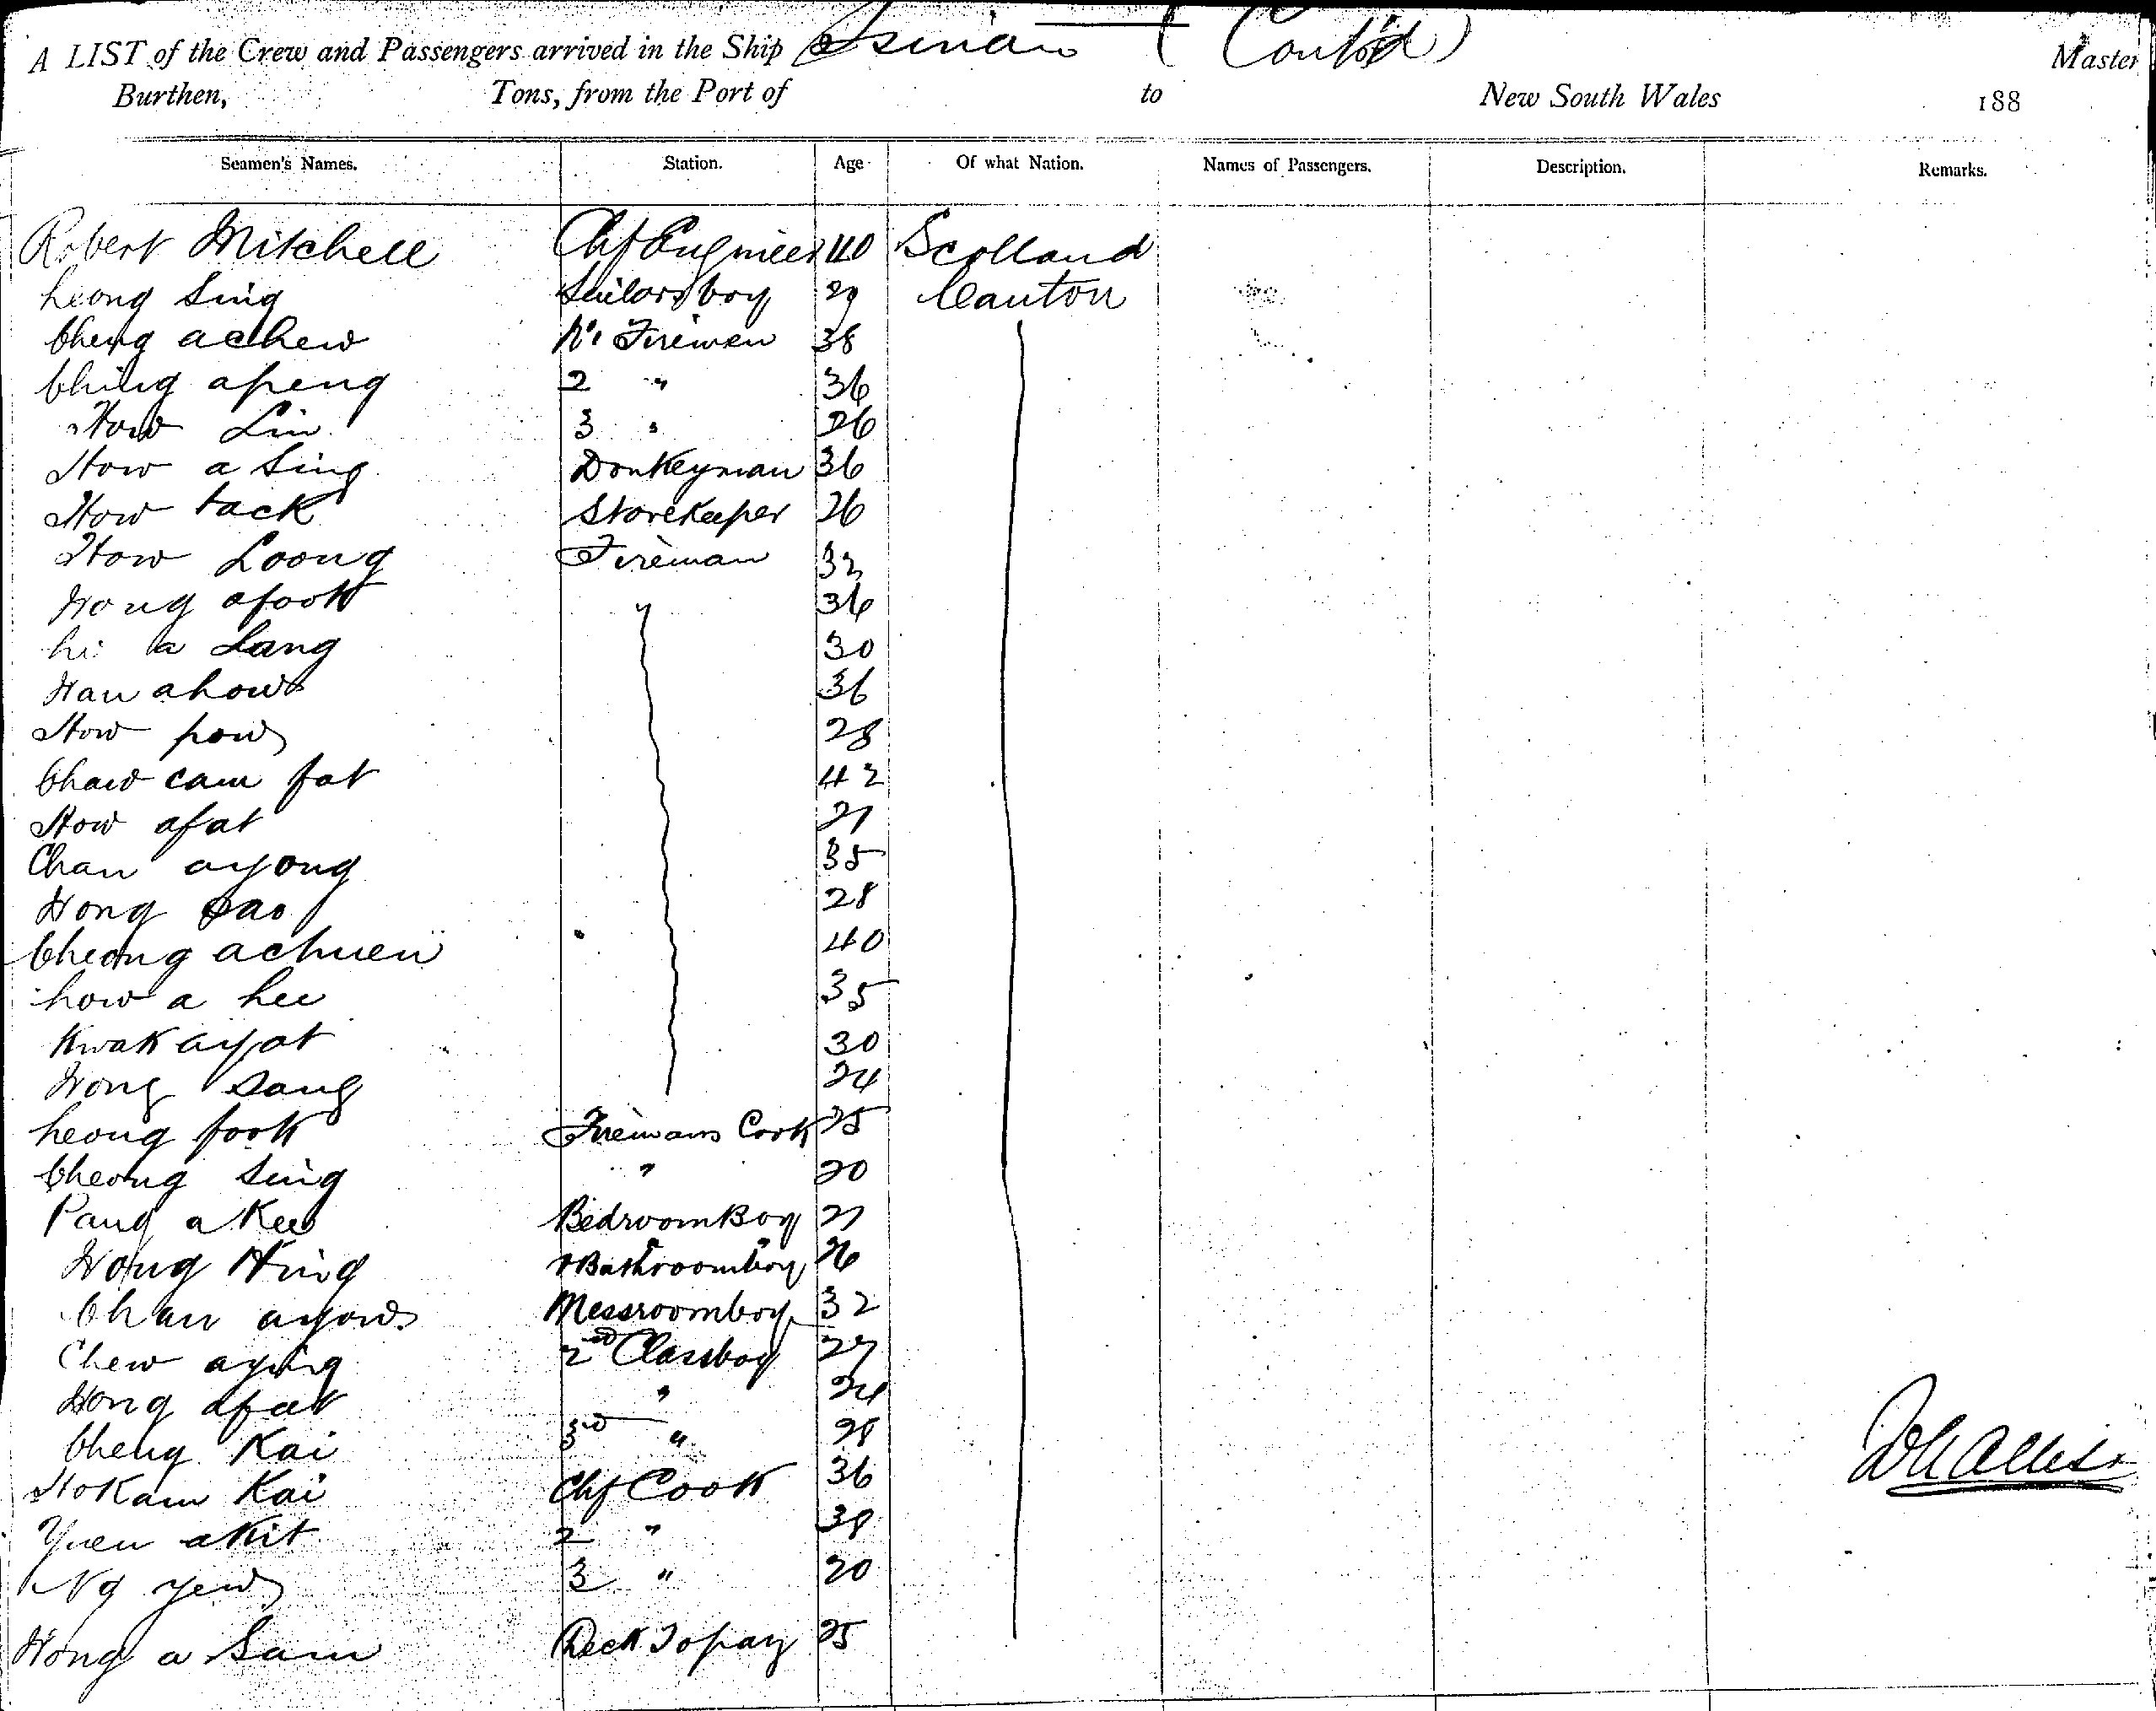 A LIST of the Crew and Passengers arrived in the Ship Tsinan (Cont'd) Master
Burthen, Tons, from the Port of to New South Wales 188
Seamen's Names. Station. Age Of what Nation. Names of Passengers. Description. Remarks.
Robert Mitchell Chf Engineer 40 Scotland
Leong Sing Sailors boy 29 Canton
Cheng achew No 1 Firemen 38
Ching apeng 2 " 36
How Lin 3 " 26
How a Sing Donkeyman 36
How tack Storekeeper 26
How Loong Fireman 32
Hong afook " 36
Li a Lang 30
Hau ahow 36
How pow 28
Chaw cam fat 42
How afat 27
Chan ayong 35
Hong sao 28
Cheong achuen 40
how a hee 35
Kwak ayat 30
Hong Sang 24
Leong fook Firemans Cook 25
Cheong Sing " 20
Pang a Kew Bedroom Boy 27
Wong Hing Bathroomboy 26
Chan ayow Messroomboy 32
Chew aying 2nd Classboy 27
Hong afat " 24
Cheng Kai 3rd " 28
Ho Kam Kai Chf Cook 36
Yuen akit 2 " 38
Ng yew 3 " 20
Hong a Sam Deck Topaz 25